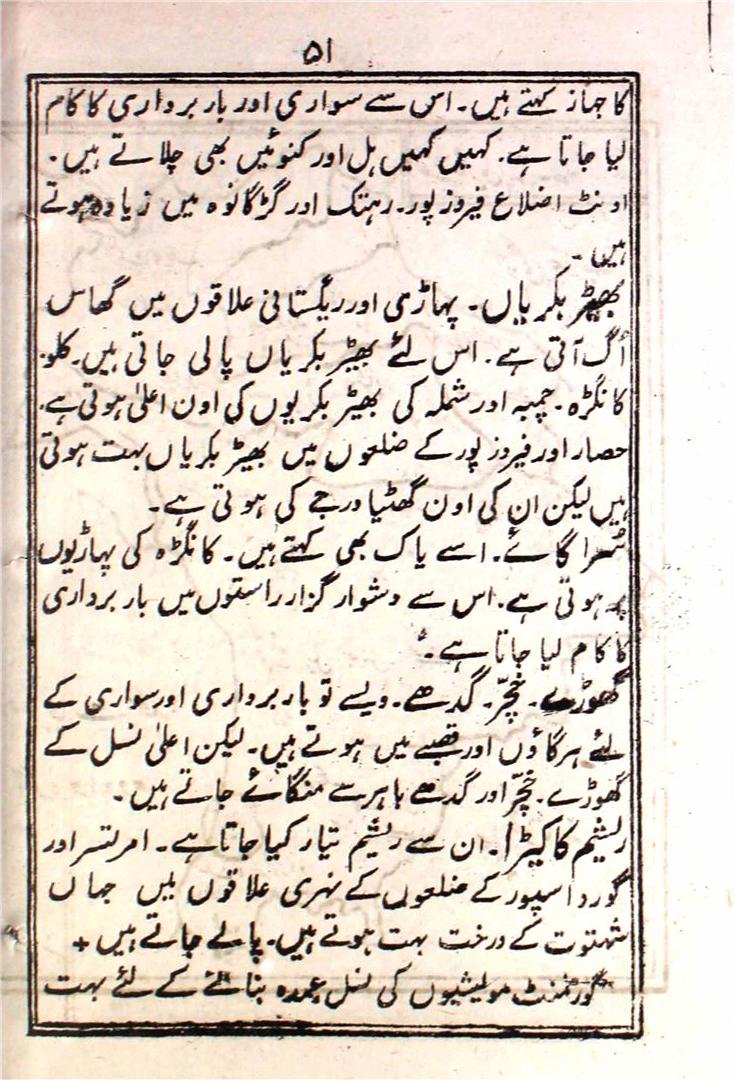 ۵۱
کا جہاز کہتے ہیں۔ اس سے سواری اور بار برداری کا کام
لیا جاتا ہے۔ کہیں کہیں ہل اور کنوئیں بھی چلاتے ہیں۔
اونٹ اضلاع فیروز پور۔ رہتک اور گڑگانوہ میں زیادہ ہوتے
ہیں۔
بھیڑ بکریاں۔ پہاڑی اور ریگستانی علاقوں میں گھاس
اُگ آتی ہے۔ اس لئے بھیڑ بکریاں پالی جاتی ہیں۔ کلو۔
کانگڑہ۔ چمبہ اور شملہ کی بھیڑ بکریوں کی اون اعلیٰ ہوتی ہے۔
حصار اور فیروز پور کے ضلعوں میں بھیڑ بکریاں بہت ہوتی
ہیں لیکن ان کی اون گھٹیا درجے کی ہوتی ہے۔
گائے۔ اسے یاک بھی کہتے ہیں۔ کانگڑہ کی پہاڑیوں
پر ہوتی ہے۔ اس سے دشوار گزار راستوں میں بار برداری
کا کام لیا جاتا ہے۔
گھوڑے۔ خچّر۔ گدھے۔ ویسے تو بار برداری اور سواری کے
لئے ہر گاؤں اور قصبے میں ہوتے ہیں۔ لیکن اعلیٰ نسل کے
گھوڑے۔ خچّر اور گدھے باہر سے منگائے جاتے ہیں۔
ریشیم کا کیڑا۔ ان سے ریشیم تیار کیا جاتا ہے۔ امرتسر اور
گورداسپور کے ضلعوں کے نہری علاقوں میں جہاں
شہتوت کے درخت بہت ہوتے ہیں۔ پالے جاتے ہیں +
گورنمنٹ مویشیوں کی نسل عمدہ بنانے کے لئے بہت